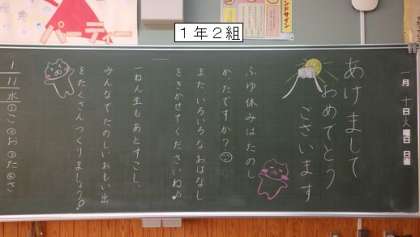 パーティー
1年2組
一月
十日
火曜日
日直
あけまして
おめでとう
ございます
ふゆ休みはたのし
かったですか？
またいろいろなおはなし
をきかせてくださいね♪
一ねん生もあとすこし。
みんなでたのしいおもい出
をたくさんつくりましょう♪
1/11 水